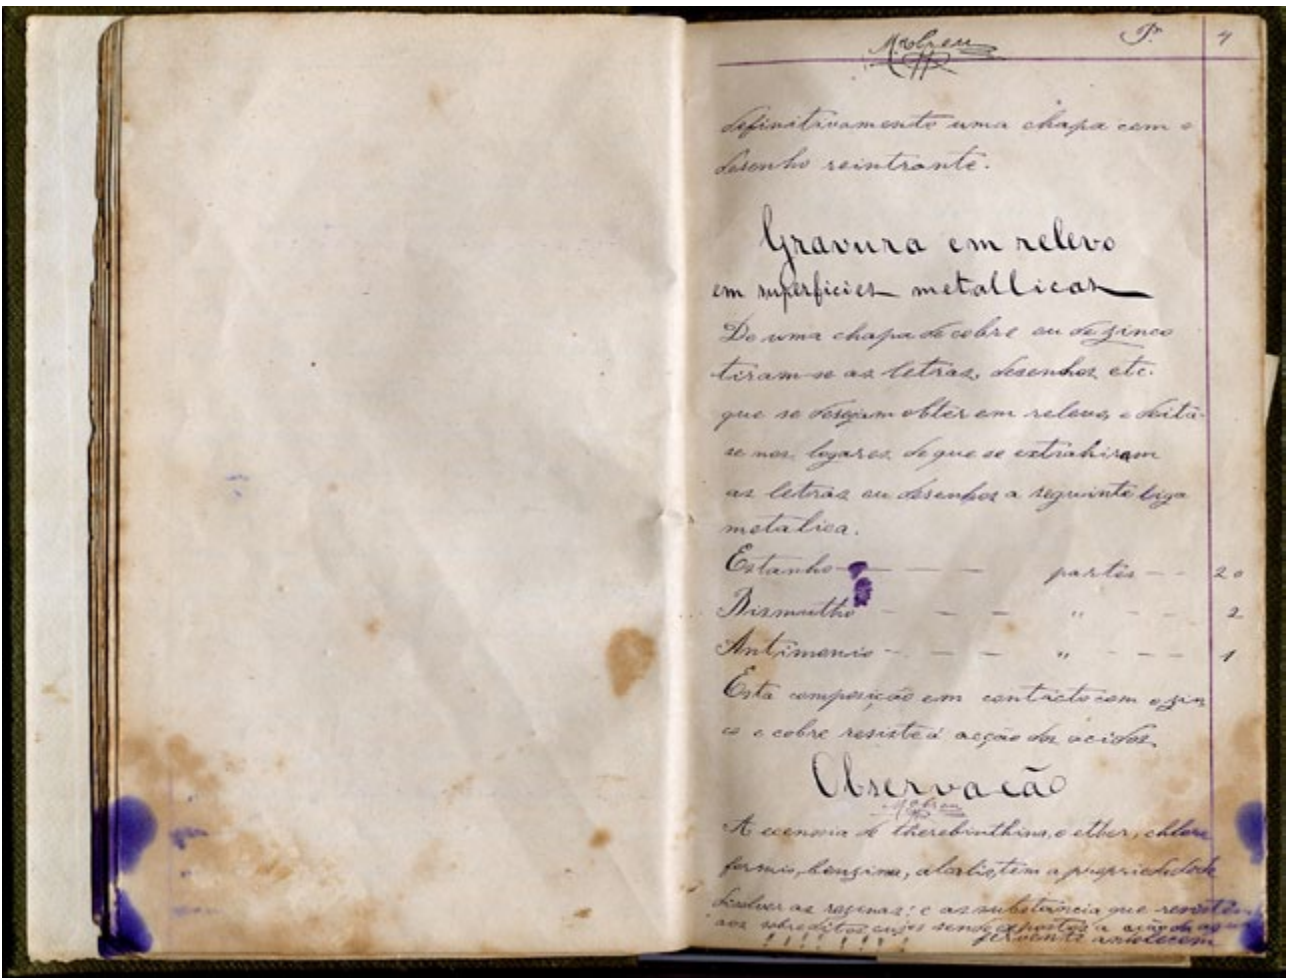 Pr. 4
definitivamente uma chapa com o
desenho reintrante.
Gravura em relevo
em superficies metallicas
De uma chapa de cobre ou de zinco
tiram-se as letras, desenhos etc.
que se desejam obter em relevo, e deita-
se nos logares de que se extrahiram
as letras ou desenhos a seguinte liga
metalica.
Estanho — — — — partes — — 20
Bismutho — — — " — — — 2
Antimonio — — — — " — — — 1
Esta composição em contacto com o zin
co e cobre resiste á acção dos acidos
Observação
A ecensia de therebinthina, o ether, chloro
formio, benzina, alcalis, tem a propriedade de
disolver as rezenas: e as substancia que resistem
aos sobreditos sendo expostos a acção da agua
fervente amolecem